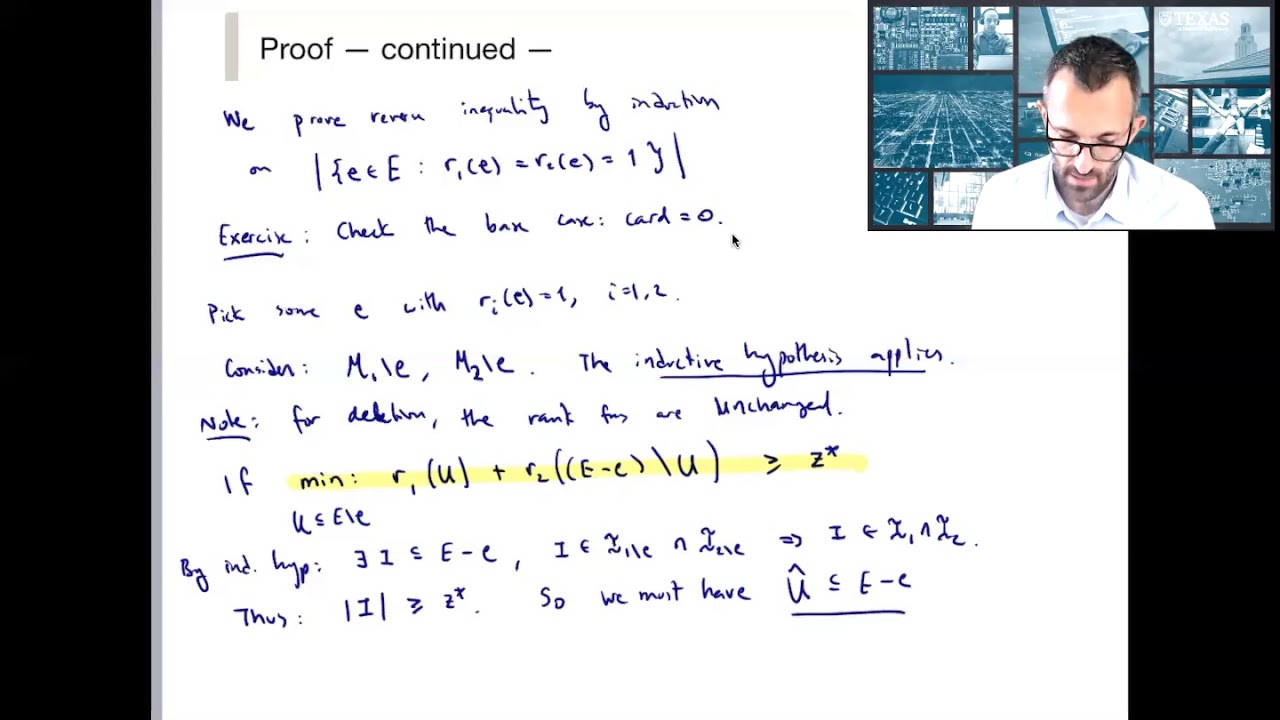 Proof — continued —
TEXAS
We prove reverse inequality by induction
on |{e ∈ E : r₁(e) = r₂(e) = 1}|
Exercise: Check the base case: card = 0.
Pick some e with rᵢ(e)=1, i=1,2.
Consider: M₁\e, M₂\e. The inductive hypothesis applies.
Note: for deletion, the rank fns are unchanged.
If min: r₁(U) + r₂((E-e)\U) ≥ z*
U ⊆ E\e
By ind. hyp: ∃ I ⊆ E-e, I ∈ ℐ₁\e ∩ ℐ₂\e ⇒ I ∈ ℐ₁ ∩ ℐ₂.
Thus: |I| ≥ z*. So we must have Û ⊆ E-e